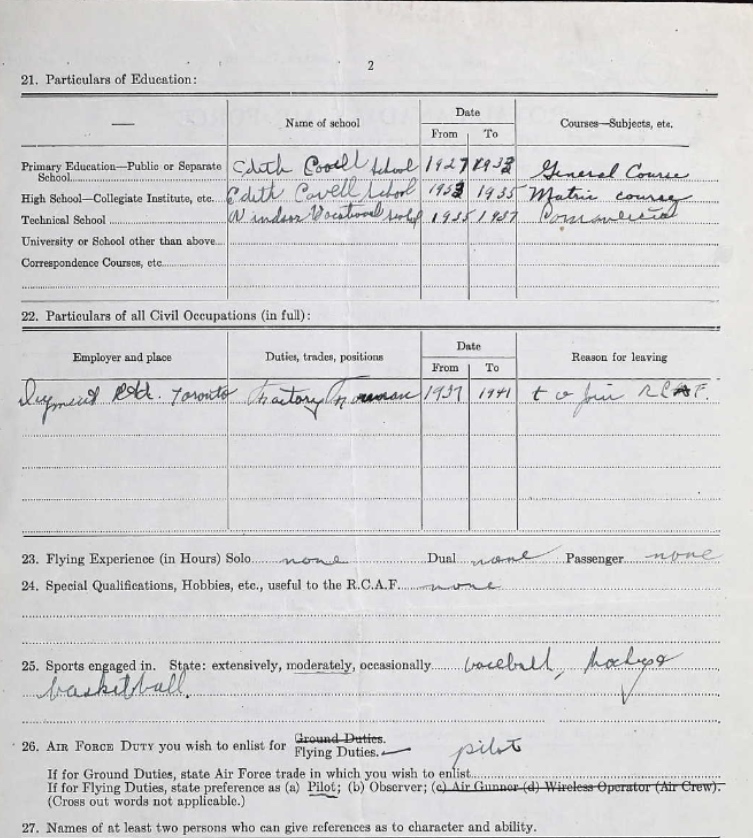 2
21. Particulars of Education:
— Name of school Date Courses—Subjects, etc.
From To
Primary Education—Public or Separate School Edith Cavell School 1927 1933 General Course
High School—Collegiate Institute, etc. Edith Cavell School 1933 1935 Matric course
Technical School Windsor Vocational School 1935 1937 Commercial
University or School other than above
Correspondence Courses, etc.
22. Particulars of all Civil Occupations (in full):
Employer and place Duties, trades, positions Date Reason for leaving
From To
Toronto Factory Foreman 1937 1941 to join RCAF.
23. Flying Experience (in Hours) Solo none Dual none Passenger none
24. Special Qualifications, Hobbies, etc., useful to the R.C.A.F. none
25. Sports engaged in. State: extensively, moderately, occasionally baseball, hockey
basketball.
26. AIR FORCE DUTY you wish to enlist for Ground Duties.
Flying Duties. pilot
If for Ground Duties, state Air Force trade in which you wish to enlist
If for Flying Duties, state preference as (a) Pilot; (b) Observer; (c) Air Gunner (d) Wireless Operator (Air Crew).
(Cross out words not applicable.)
27. Names of at least two persons who can give references as to character and ability.